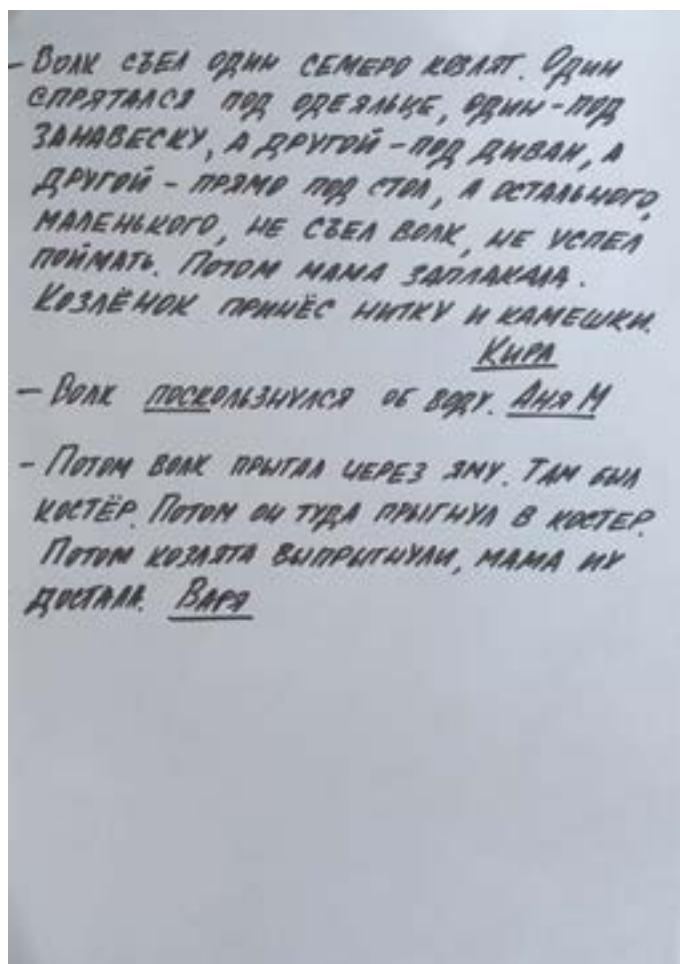 - Волк съел один семеро козлят. Один
спрятался под одеяльце, один - под
занавеску, а другой - под диван, а
другой - прямо под стол, а остального,
маленького, не съел волк, не успел
поймать. Потом мама заплакала.
Козлёнок принёс нитку и камешки.
Кира
- Волк поскользнулся об воду. Аня М
- Потом волк прыгал через яму. Там был
костёр. Потом он туда прыгнул в костер.
Потом козлята выпрыгнули, мама их
достала. Варя